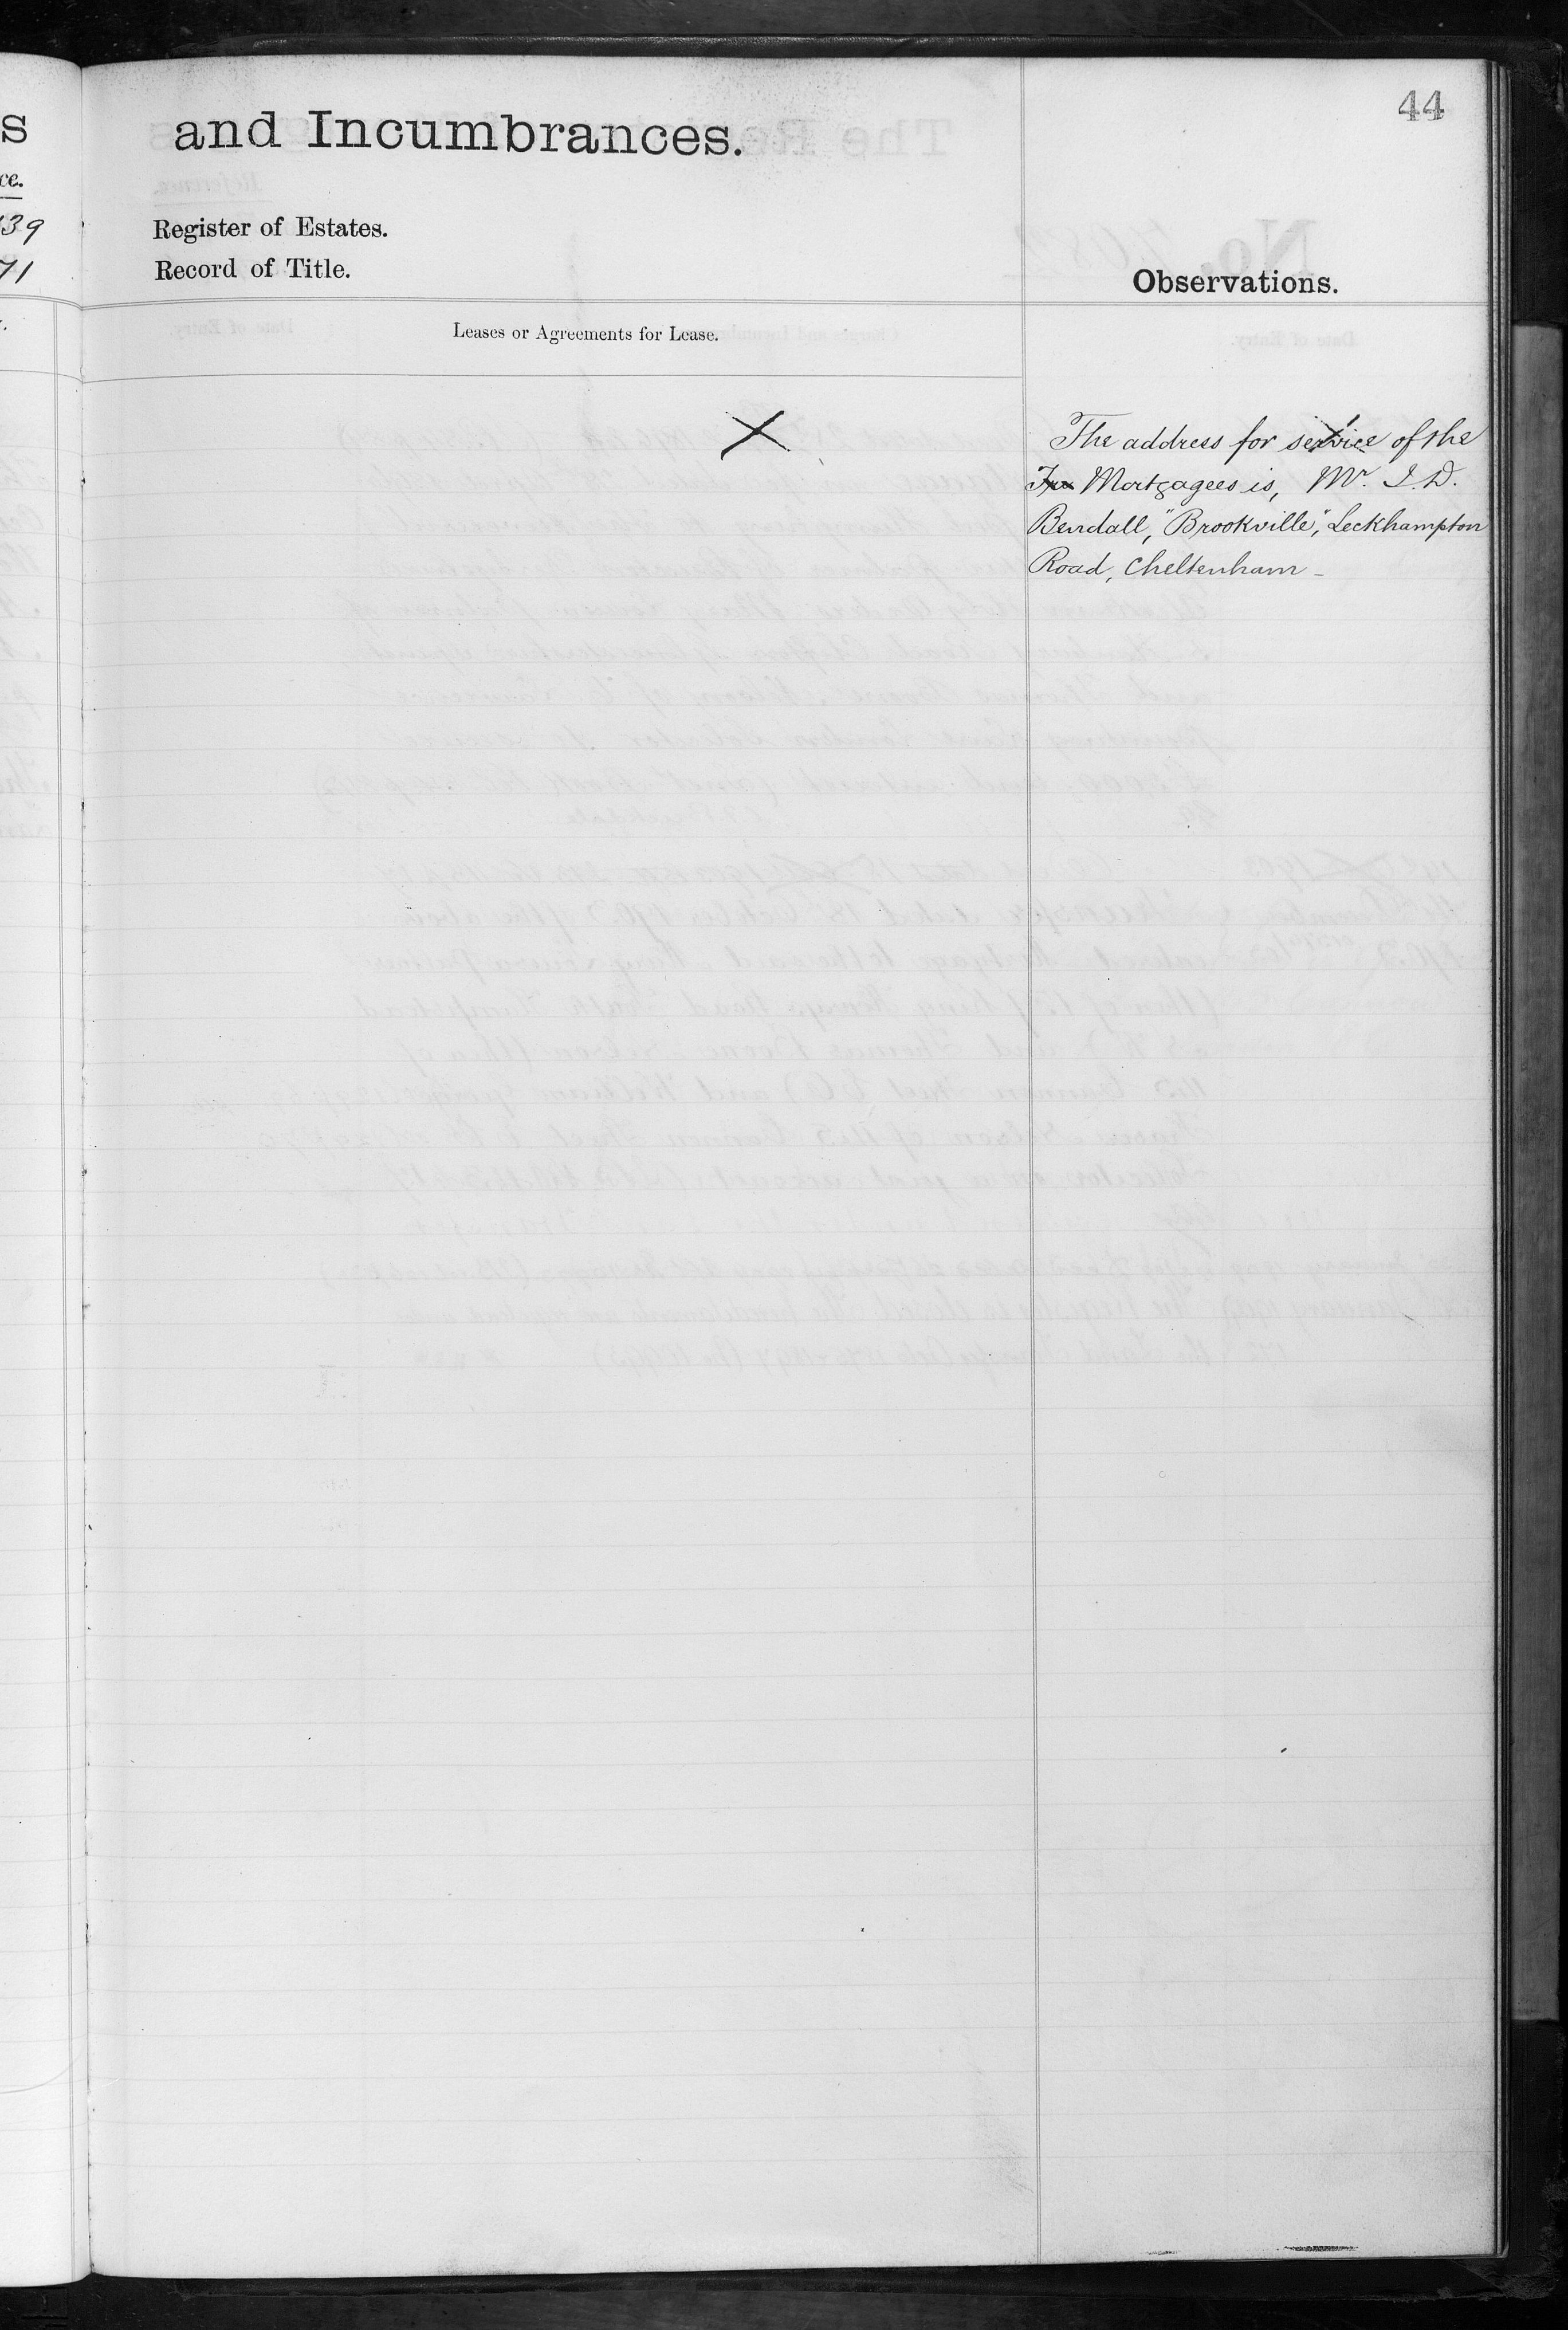 44
s and Incumbrances.
ce.
39 Register of Estates.
71 Record of Title.
Observations.
Leases or Agreements for Lease.
The address for service of the
Mortgagees is, Mr. J. D.
Bendall, "Brookville", Leckhampton
Road, Cheltenham -